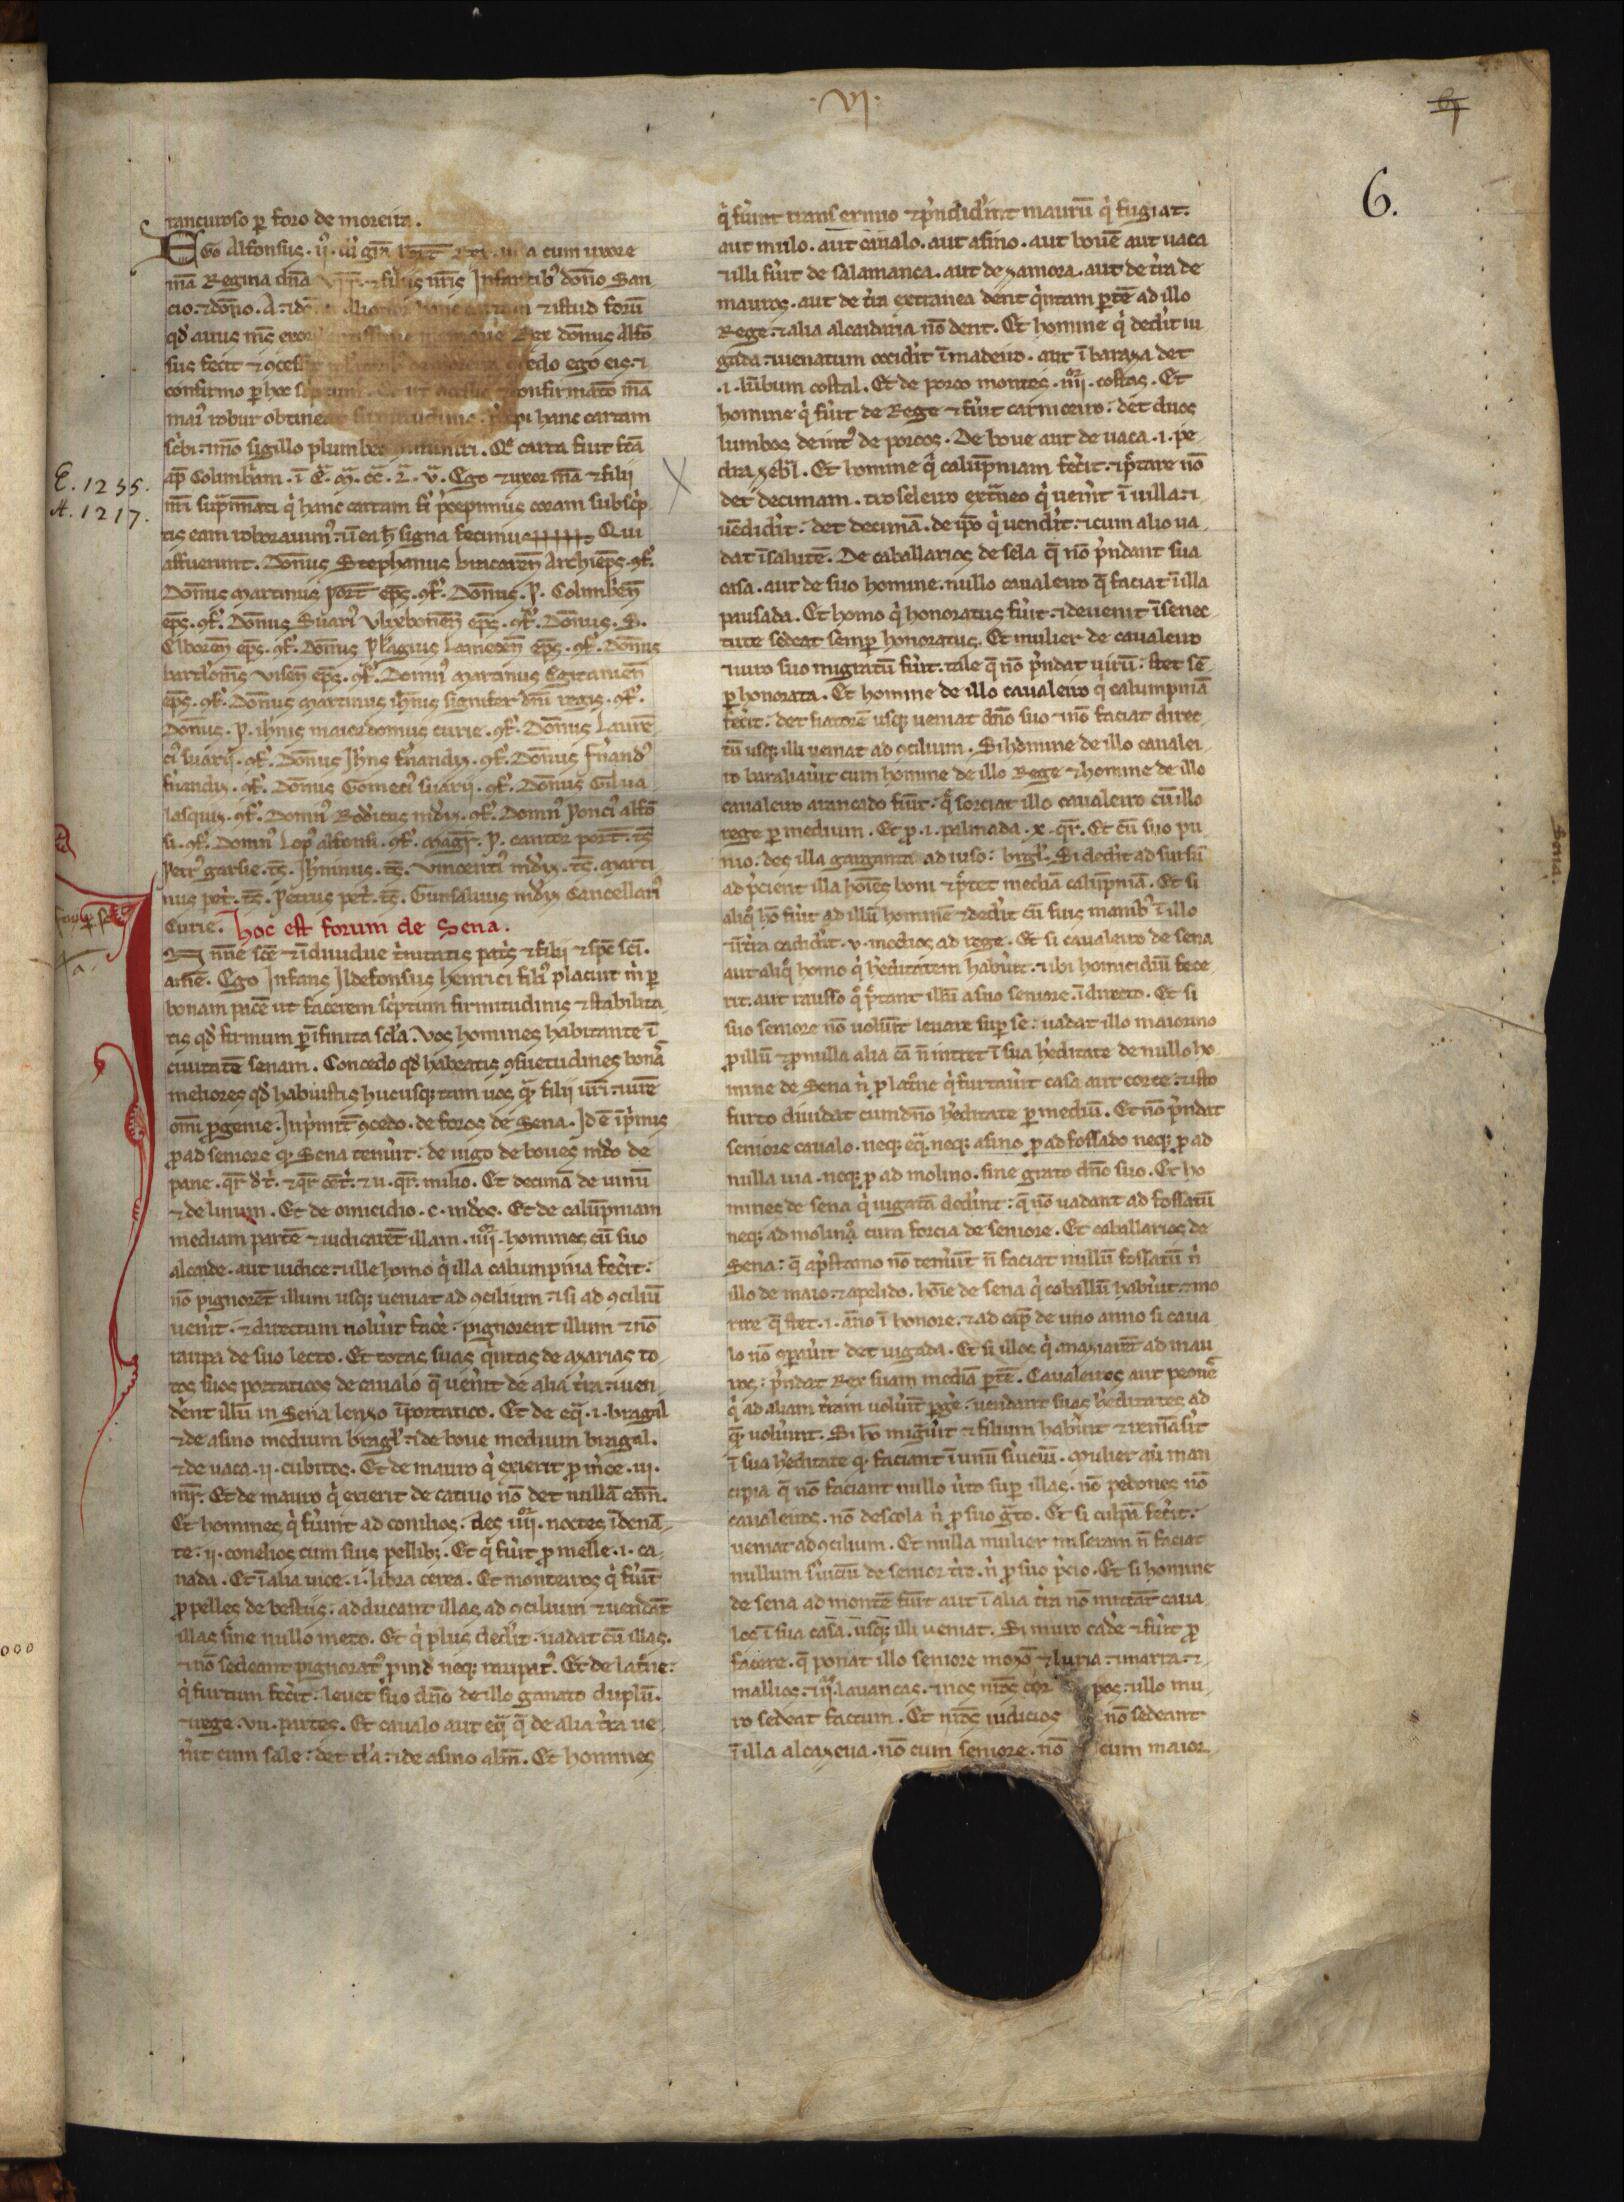 ·VI·
6.
rancuroso per foro de moreira.
EGo Alfonsus. ij. cum uxore
mea Regina dña filiis nr̄is Infantibꝰ dono San
cio. ⁊ dono. A. ⁊ istud forū
qd̄ auus nr̄s Rex donnus Alfō
sus fecit ⁊ ꝯcessit cedo ego eis. ⁊
confirmo ꝑ hoc confirmatio mā
maiꝰ robur obtineat hanc cartam
sc̄bi. ⁊ meo sigillo plumbeo muniri. Qͤ carta fuit fc̄a
E. 1255.
A. 1217.
ap̄ Colimbr̄am. ī Eª. Mª. ccª. Lª. vª. Ego ⁊ uxor mā ⁊ filij
mei sup̄ nom̄ati q̇ hanc cartam fi'i p̄cepimus coram subsc̄p
tis eam roborauimꝰ. ⁊ ī ea h̄ signa fecimus Qui
affuerunt. Donnus Stephanus bracareñ Archiep̄s. ꝯf.
Donnus Martinus Port̄ ep̄s. ꝯf. Donnus. P. Colimbr̄eñ
ep̄s. ꝯf. Donnus Suariꝰ Vlixbonēn ep̄s. ꝯf. Donnus. S.
Elboreñ ep̄s. ꝯf. Donnus Pelagius Lamecēn ep̄s. ꝯf. Donnus
bartl̄oms̄ Viseñ ep̄s. ꝯf. Donnꝰ Martinus Egitanieñ
ep̄s. ꝯf. Donnus Martinus ih̄nis signifer dn̄i regis. ꝯf.
Donnus. P. ih̄nis maiordomus curie. ꝯf. Donnus Laurē
ciꝰ suarij. ꝯf. Donnus Ih̄ns fernandiȝ. ꝯf. Donnus Fr̄nandꝰ
fr̄nandiȝ. ꝯf. Donnus Gomeciꝰ suarij. ꝯf. Donnus Gil ua
lasquis. ꝯf. Donnꝰ Rod̄icus m̄diȝ. ꝯf. Donnꝰ Ponciꝰ alfō
si. ꝯf. Donnꝰ Lopꝰ alfonsi. ꝯf. Magr̄. P. cantor port̄. ts̄
Petrꝰ garsie. ts̄. Ih̄ninus. ts̄. Vincentiꝰ m̄diȝ. ts̄. Marti
nus pet'. ts̄. Petrus pet'. ts̄. Gunsaluus m̄diȝ Cancellariꝰ
Curie. Hoc est forum de Sena.
IN nn̄e sc̄e ⁊ īdiuidue t'nitatis pat's ⁊ filij ⁊ sp̄s sc̄i.
am̄e. Ego Infans Ildefonsus henrici filiꝰ placuit m' ꝑ
bonam pacē ut facerem sc'ptum firmitudinis ⁊ stabilita
tis qd̄ firmum ꝑ īfinita sc̄la. Vos homines habitante ī
ciuitatē senam. Concedo qd̄ habeatis ꝯsuetudines bonā
meliores qd̄ habuistis hucusqꝫ tam uos qͣ filij ur̄i. ⁊ ur̄e
om̄i ꝓgenie. Inp'mit̄ ꝯcedo. de foros de Sena. Id ē īp'mis
ꝓ ad seniore q Sena tenu'it: de iugo de boues m̄do de
pane. qr̄ d' t'. ⁊ qr̄ cēt'. ⁊ u. qr̄. milio. Et decimā de uinū
⁊ de linum. Et de omicidio. c. m̄dos. Et de calūpniam
mediam partē ⁊ iudicarēt illam. iiij. homines cū suo
alcaide. aut iudice. ⁊ ille homo q̇ illa calumpnia fec'it:
nō pignorēt illum usqꝫ ueniat ad ꝯcilium. ⁊ si ad ꝯciliū
uen'it. ⁊ directum nolu'it face'. pignorent illum ⁊ nō
raupa de suo lecto. Et totas suas q'ntas de axarias to
tos suos portaticos de caualo q̄ uen'it de alia t'ra. ⁊ uen
d'ent illū in Sena lenxo īportatico. Et de eqͣ. i. bragal
⁊ de asino medium bragl̄. ⁊ de boue medium bragal.
⁊ de uaca. ij. cubitos. Et de mauro q̇ exierit ꝓ m'ce. iij.
mr̄. Et de mauro q̇ exierit de catiuo nō det nullā cām.
Et homines q̇ fu'unt ad conilios. des iiij. noctes ī denā
te. ij. conelios cum suis pellibꝫ. Et q̇ fu'it ꝓ melle. i. ca
nada. Et ī alia uice. i. libra cerea. Et monteiros q̇ fu'it
ꝓ pelles de bestiis. adducant illas ad ꝯcilium ⁊ uendāt
illas sine nullo meto. Et q̇ plus ded'it. uadat cū illas.
⁊ nō sedeant pignoratꝰ ꝓind' neqꝫ raupatꝰ. Et de lat'ne:
q̇ furtum fec'it. leuet suo dn̄o de illo ganato duplū.
⁊ rege. vii. partes. Et caualo aut eqͣ q̄ de alia t'ra ue
n'it cum sale: det t'la. ⁊ de asino alm̄. Et homines
q̇ fu'int trans ermo ⁊ p'ndid'int maurū q̇ fugiat.
aut mulo. aut caualo. aut asino. aut bouē aut uaca
⁊ illi fu'it de salamanca. aut de zamora. aut de t'ra de
mauros. aut de t'ra extranea dent q'ntam ꝑtē ad illo
Rege. ⁊ alia alcaidaria nō dent. Et homine q̇ ded'it iu
gada. ⁊ uenatum occid'it ī madeiro. aut ī baraza det
.i. lūbum costal. Et de porco montes. iiijor. costas. Et
homine q̇ fu'it de Rege ⁊ fu'it carniceiro: det duos
lumbos de int' de porcos. De boue aut de uaca. i. pe
dra zebl̄. Et homine q̇ calūpniam fec'it. ⁊ p̄tare nō
det decimam. troseleiro ext̄neo q̇ uen'it ī uilla. ⁊
uēdid'it: det decimā. de ip̄o q̇ uend'it. ⁊ cum alio ua
dat ī salutē. De caballarios de sela q̄ nō p'ndant sua
casa. aut de suo homine. nullo caualeiro q̄ faciat ī illa
pausada. Et homo q̇ honoratus fu'it. ⁊ deuenit ī senec
tute sedeat semꝑ honoratus. Et mulier de caualeiro
⁊ uiro suo migratū fu'it. tale q̄ nō p'ndat uirū: stet sē
ꝑ honorata. Et homine de illo caualeiro q̇ calumpniā
fec'it. det fiatorē usqꝫ ueniat dn̄o suo ⁊ nō faciat direc
tū usqꝫ illi ueniat ad ꝯcilium. Si homine de illo caualei
ro baraliau'it cum homine de illo Rege ⁊ homine de illo
caualeiro arancado fu'it. q̄ sorciat illo caualeiro cū illo
rege ꝑ medium. Et ꝓ. i. palmada. x. qr̄. Et cū suo pu
nio. des illa garganta ad iuso: brgl̄. Si ded'it ad sursū
ad p'cient illa hoīes boni ⁊ p̄tet mediā calūpniā. Et si
aliqͦ hō fu'it ad illū hominē ⁊ ded'it cū suis manibꝰ ī illo
⁊ ī t'ra cadid'it. v. modios ad rege. Et si caualeiro de sena
aut aliqͦ homo q̇ h'editatem habu'it. ⁊ ibi homicidiū fece
rit. aut rausso qͦ p̄tant illū a suo seniore. ī directo. Et si
suo seniore nō uolu'it leuare sup̄ se: uadat illo maiorino
ꝓ illū ⁊ ꝓ nulla alia cā n̄ intret ī sua h'editate de nullo ho
mine de Sena n' ꝓ lat'one q̇ furtau'it casa aut corte. ⁊ isto
furto diuidat cum dn̄o h'editate ꝑ mediū. Et nō p'ndat
seniore caualo. neqꝫ eqͣ. neqꝫ asino ꝓ ad fossado neqꝫ ꝓ ad
nulla uia. neqꝫ ꝓ ad molino. sine grato dn̄o suo. Et ho
mines de sena q̇ iugatā ded'int: q̄ nō uadant ad fossatū
neqꝫ ad molinoͦ cum forcia de seniore. Et caballarios de
Sena: q̄ ap̄stamo nō tenu'it n̄ faciat nullū fossatū n'
illo de maio. ⁊ apelido. hoīe de sena q̇ caballū habu'it. ⁊ mo
rire q̄ stet. i. āno ī honore. ⁊ ad cap̄ de uno anno si caua
lo nō ꝯparau'it det iugada. Et si illos q̇ anaziarēt ad mau
ros: p'ndat Rex suam mediā ꝑtē. Caualeiros aut peonē
q̇ ad aliam t'ram uolu'it ꝑge'. uendant suas h'editates ad
qͣ uolu'int. Si hō mig̅u'it ⁊ filium habu'it ⁊ remās'it
ī sua h'editate q faciant ī unū s'uiciū. Mulier aū man
cipia q̄ nō faciant nullo u'to sup̄ illas. nō pedones nō
caualeiros. nō de scola n' ꝓ suo g̅to. Et si culpā fec'it.
ueniat ad ꝯcilium. Et nulla mulier miseram n̄ faciat
nullum s'uiciū de senior t're. n' ꝓ suo p'cio. Et si homine
de sena ad montē fu'it aut ī alia t'ra nō mittāt caua
los ī sua casa. usqꝫ illi ueniat. Si muro cade' ⁊ fu'it ꝓ
facere. q̄ ponat illo seniore mozō ⁊ lupia. ⁊ marra. ⁊
mallios. ⁊ iij. lauancas. ⁊ nos nr̄os cor pos. ⁊ illo mu
ro sedeat factum. Et nr̄os iudicios nō sedeant
ī illa alcazeua. nō cum seniore. nō cum maior
Sena.